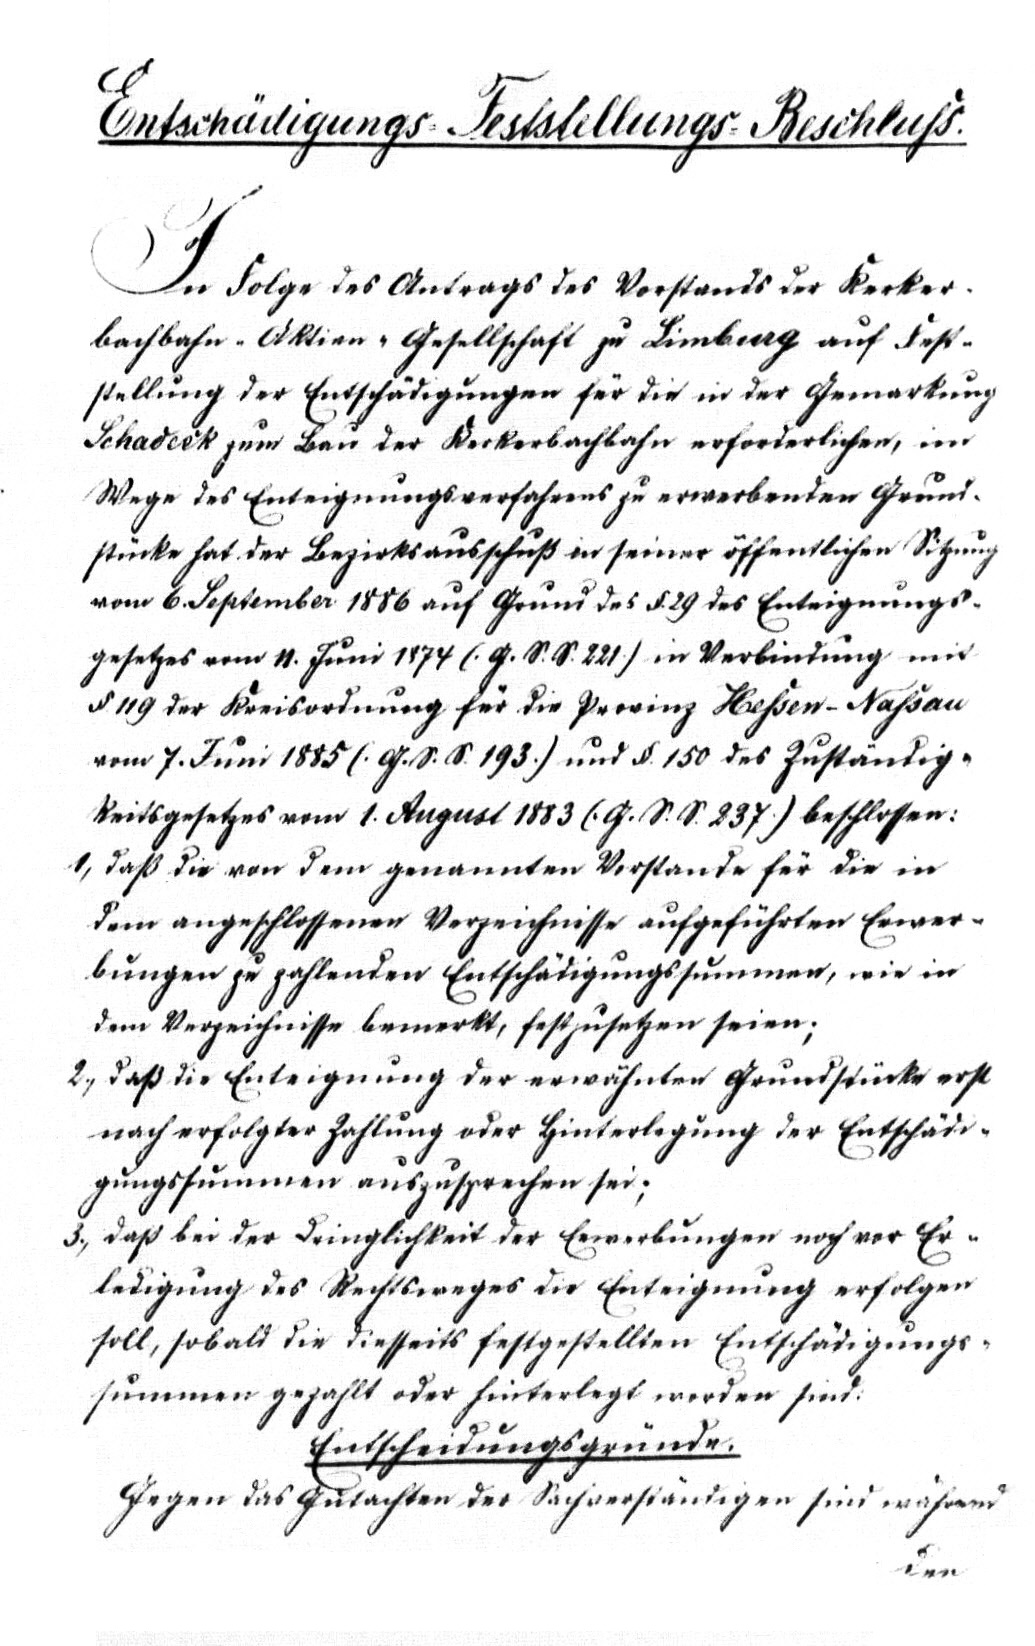 Entschädigungs-Feststellungs-Beschluß.
In Folge des Antrags des Vorstands der Kerker-
bachbahn-Aktien-Gesellschaft zu Limburg auf Fest-
stellung der Entschädigungen für die in der Gemarkung
Schadeck zum Bau der Kerkerbachbahn erforderlichen, im
Wege des Enteignungsverfahrens zu erwerbenden Grund-
stücke hat der Bezirksausschuß in seiner öffentlichen Sitzung
vom 6. September 1886 auf Grund des §. 29 des Enteignungs-
gesetzes vom 11. Juni 1874 (. G. S. S. 221.) in Verbindung mit
§ 119 der Kreisordnung für die Provinz Hessen-Nassau
vom 7. Juni 1885 (. G. S. S. 193.) und §. 150 des Zuständig-
keitsgesetzes vom 1. August 1883 (. G. S. S. 237.) beschlossen:
1, daß die von dem genannten Vorstande für die in
dem angeschlossenen Verzeichnisse aufgeführten Erwer-
bungen zu zahlenden Entschädigungssummen, wie in
dem Verzeichnisse bemerkt, festzusetzen seien;
2., daß die Enteignung der erwähnten Grundstücke erst
nach erfolgter Zahlung oder Hinterlegung der Entschädi-
gungssummen auszusprechen sei;
3., daß bei der Dringlichkeit der Erwerbungen noch vor Er-
ledigung des Rechtsweges die Enteignung erfolgen
soll, sobald die diesseits festgestellten Entschädigungs-
summen gezahlt oder hinterlegt worden sind:
Entscheidungsgründe.
Gegen das Gutachten der Sachverständigen sind während
den